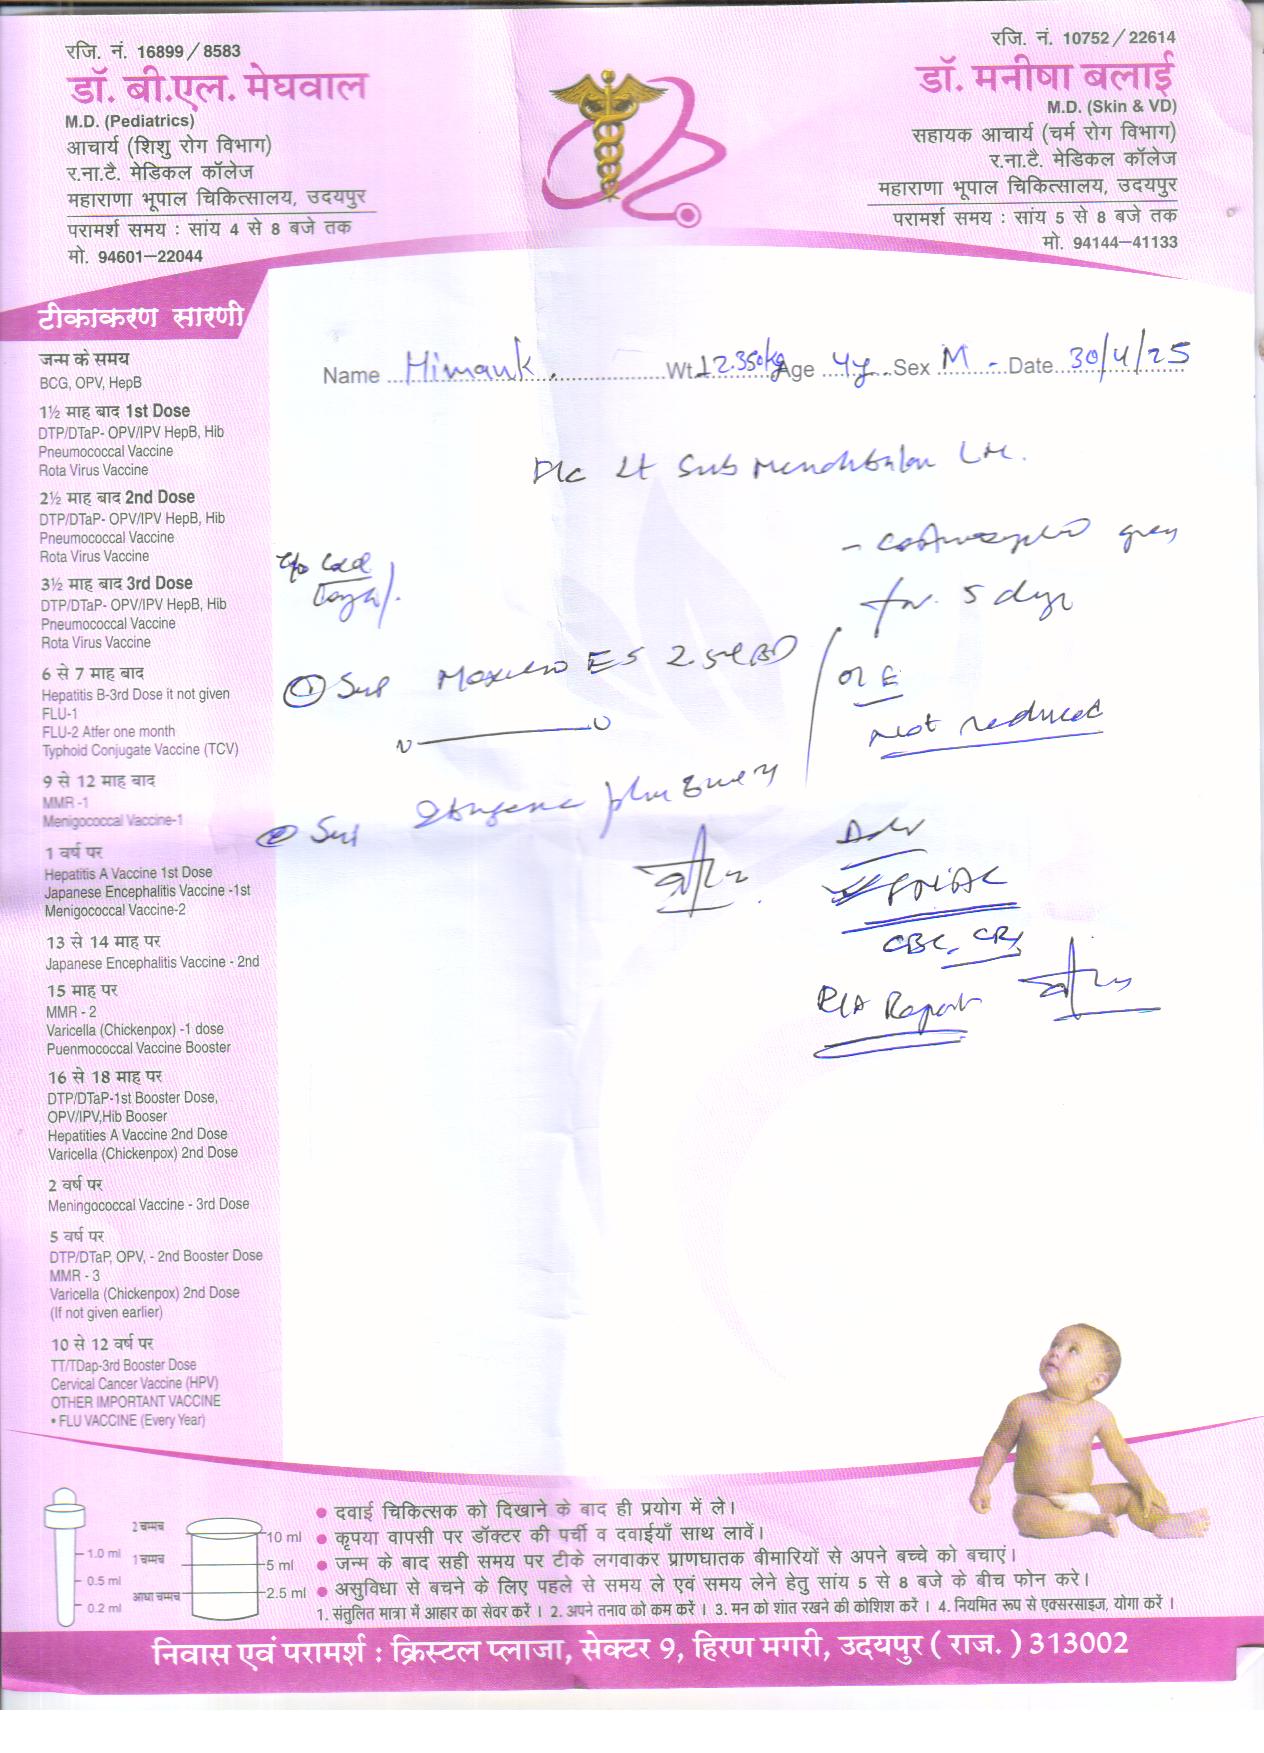 रजि. नं. 16899/8583
डॉ. बी.एल. मेघवाल
M.D. (Pediatrics)
आचार्य (शिशु रोग विभाग)
र.ना.टै. मेडिकल कॉलेज
महाराणा भूपाल चिकित्सालय, उदयपुर
परामर्श समय : सांय 4 से 8 बजे तक
मो. 94601-22044
रजि. नं. 10752/22614
डॉ. मनीषा बलाई
M.D. (Skin & VD)
सहायक आचार्य (चर्म रोग विभाग)
र.ना.टै. मेडिकल कॉलेज
महाराणा भूपाल चिकित्सालय, उदयपुर
परामर्श समय : सांय 5 से 8 बजे तक
मो. 94144-41133
टीकाकरण सारणी
जन्म के समय
BCG, OPV, HepB
1½ माह बाद 1st Dose
DTP/DTaP- OPV/IPV HepB, Hib
Pneumococcal Vaccine
Rota Virus Vaccine
2½ माह बाद 2nd Dose
DTP/DTaP- OPV/IPV HepB, Hib
Pneumococcal Vaccine
Rota Virus Vaccine
3½ माह बाद 3rd Dose
DTP/DTaP- OPV/IPV HepB, Hib
Pneumococcal Vaccine
Rota Virus Vaccine
6 से 7 माह बाद
Hepatitis B-3rd Dose it not given
FLU-1
FLU-2 Atfer one month
Typhoid Conjugate Vaccine (TCV)
9 से 12 माह बाद
MMR -1
Menigococcal Vaccine-1
1 वर्ष पर
Hepatitis A Vaccine 1st Dose
Japanese Encephalitis Vaccine -1st
Menigococcal Vaccine-2
13 से 14 माह पर
Japanese Encephalitis Vaccine - 2nd
15 माह पर
MMR - 2
Varicella (Chickenpox) -1 dose
Puenmococcal Vaccine Booster
16 से 18 माह पर
DTP/DTaP-1st Booster Dose,
OPV/IPV,Hib Booser
Hepatities A Vaccine 2nd Dose
Varicella (Chickenpox) 2nd Dose
2 वर्ष पर
Meningococcal Vaccine - 3rd Dose
5 वर्ष पर
DTP/DTaP, OPV, - 2nd Booster Dose
MMR - 3
Varicella (Chickenpox) 2nd Dose
(If not given earlier)
10 से 12 वर्ष पर
TT/TDap-3rd Booster Dose
Cervical Cancer Vaccine (HPV)
OTHER IMPORTANT VACCINE
• FLU VACCINE (Every Year)
Name Himank. Wt 12.350kg Age 4y. Sex M - Date 30/4/25
Lt Sub
c/o Cold
Cough/.
for 5 days
① ES 2.5ml BD
O/E
not reduced
② plus
Adv
FNAC
CBC, CRP
Report
2 चम्मच
1 चम्मच
आधा चम्मच
1.0 ml
0.5 ml
0.2 ml
10 ml
5 ml
2.5 ml
• दवाई चिकित्सक को दिखाने के बाद ही प्रयोग में ले।
• कृपया वापसी पर डॉक्टर की पर्ची व दवाईयाँ साथ लावें।
• जन्म के बाद सही समय पर टीके लगवाकर प्राणघातक बीमारियों से अपने बच्चे को बचाएं।
• असुविधा से बचने के लिए पहले से समय ले एवं समय लेने हेतु सांय 5 से 8 बजे के बीच फोन करे।
1. संतुलित मात्रा में आहार का सेवर करें । 2. अपने तनाव को कम करें । 3. मन को शांत रखने की कोशिश करें । 4. नियमित रूप से एक्सरसाइज, योगा करें ।
निवास एवं परामर्श : क्रिस्टल प्लाजा, सेक्टर 9, हिरण मगरी, उदयपुर ( राज. ) 313002